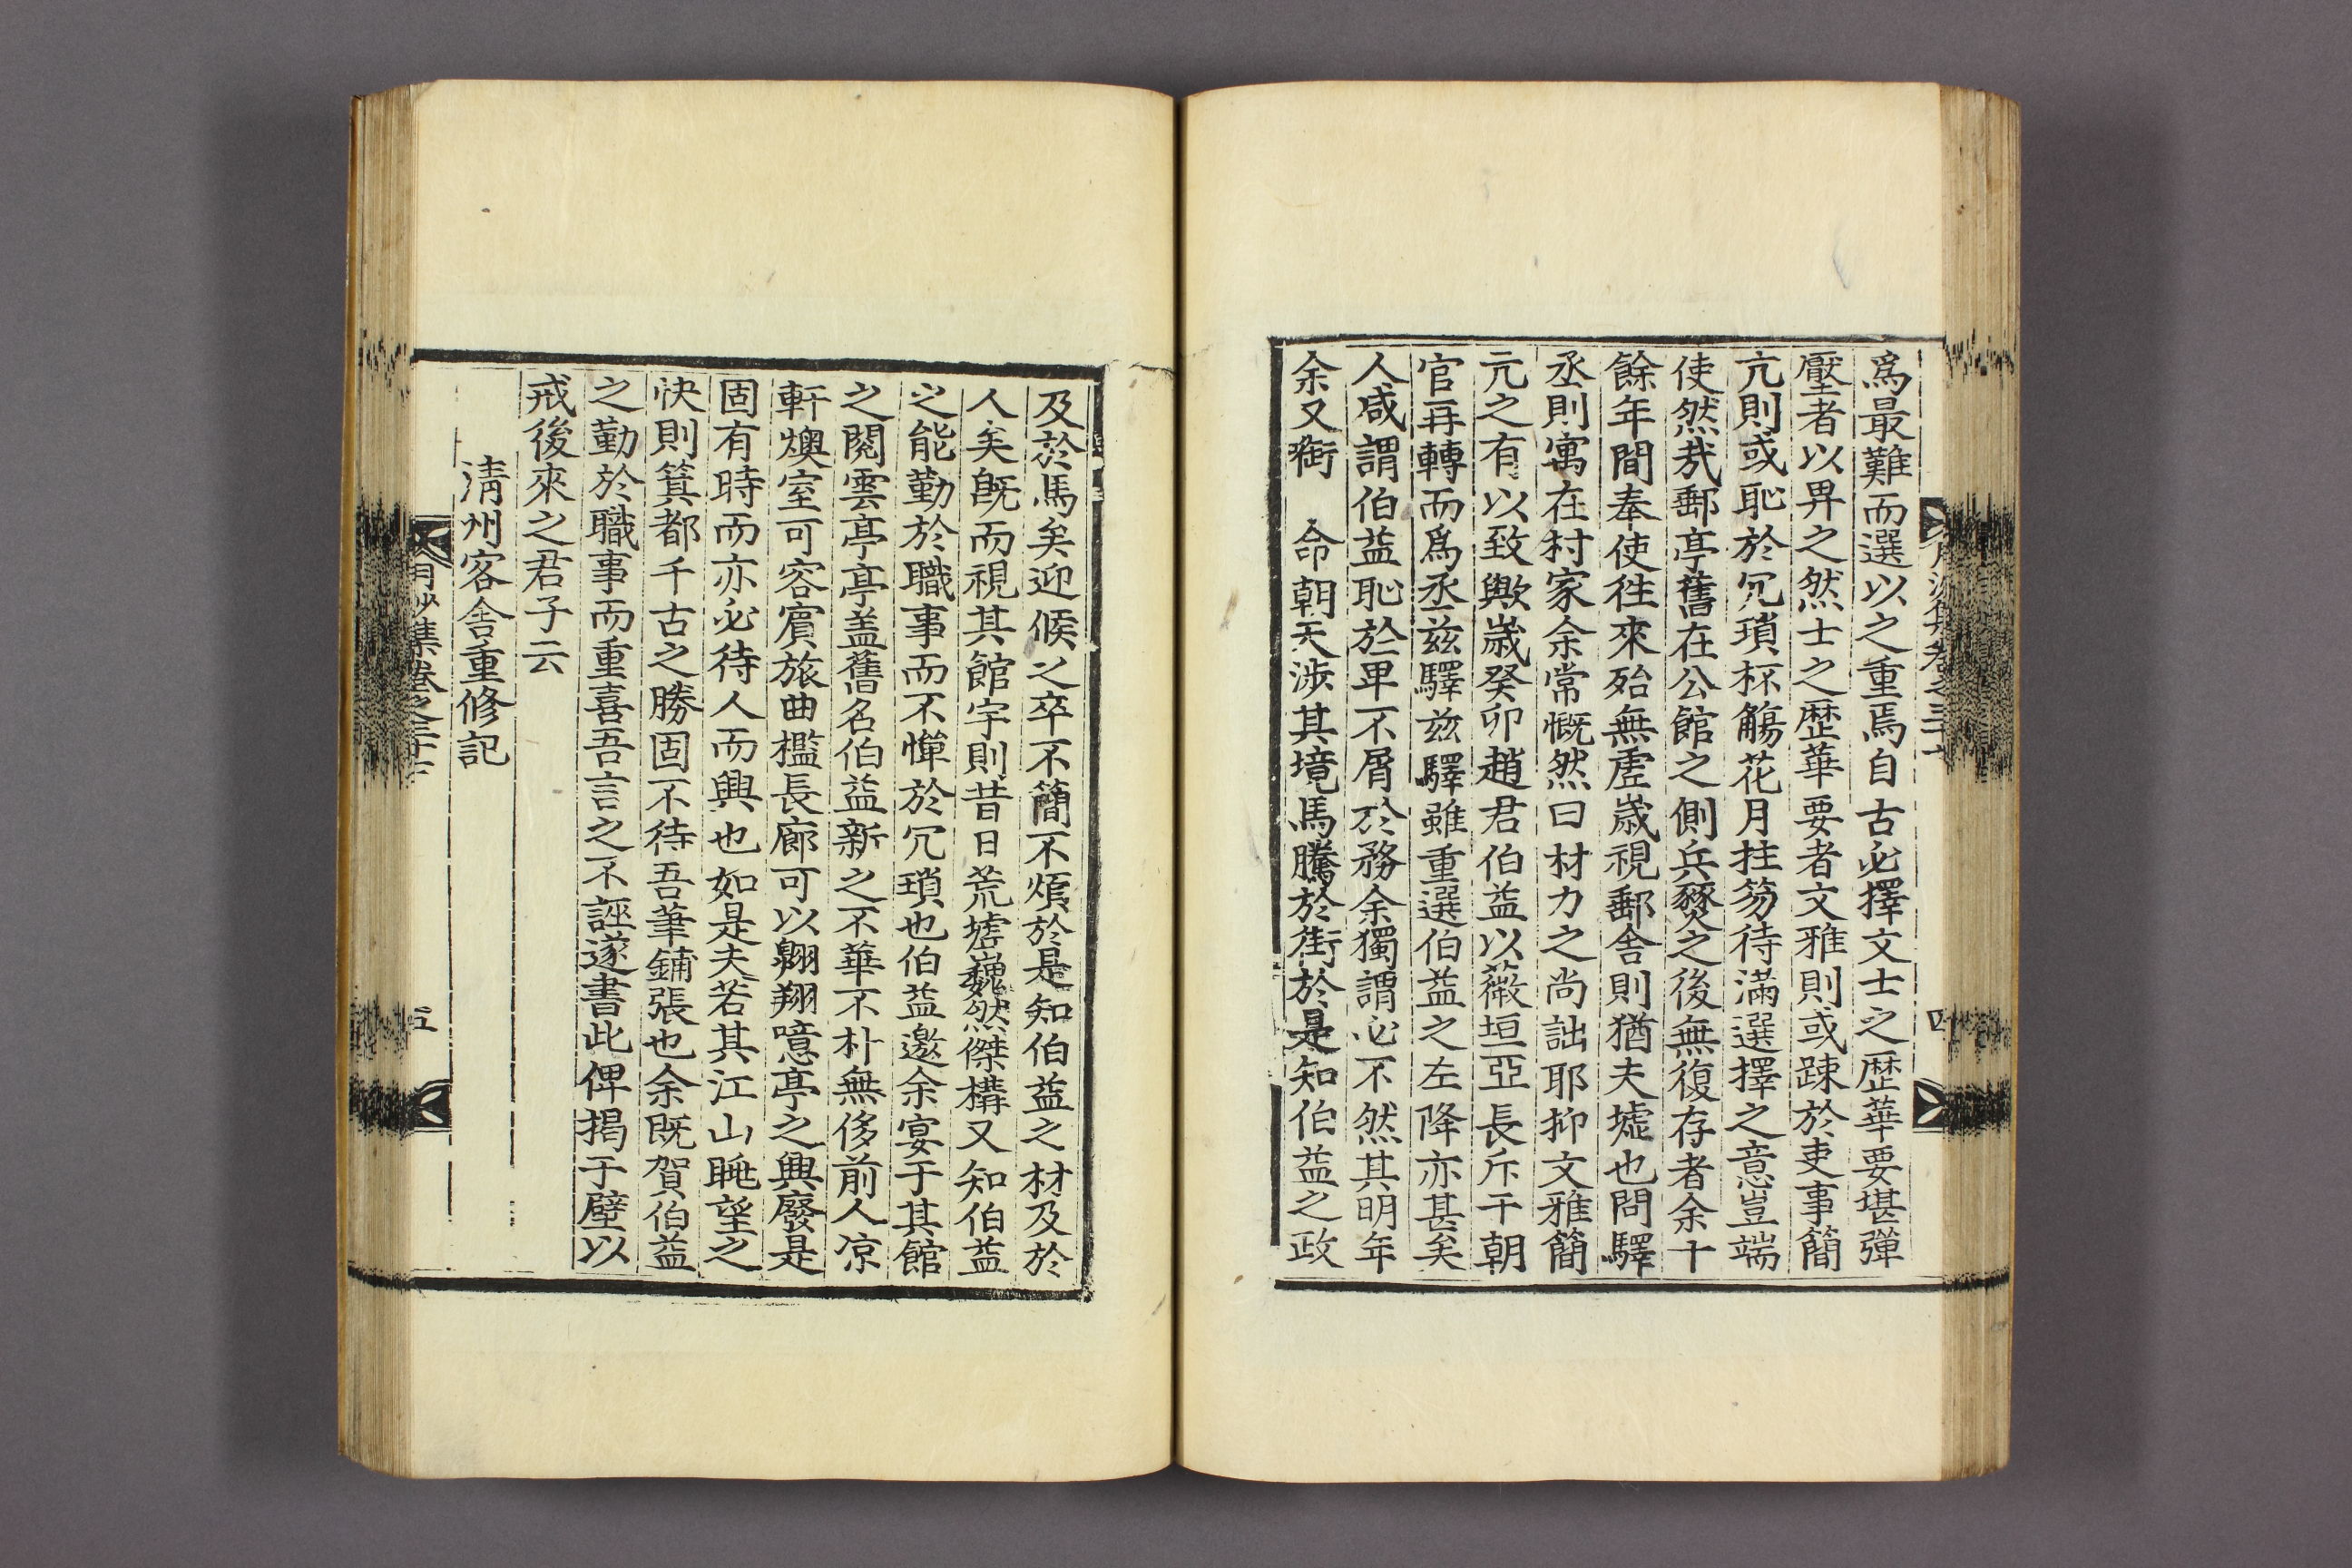 爲最難而選以之重焉自古必擇文士之歷華要堪彈
壓者以畀之然士之歷華要者文雅則或踈於吏事簡
亢則或恥於冗瑣杯觴花月拄笏待滿選擇之意豈端
使然㦲郵亭舊在公館之側兵燹之後無復存者余十
餘年間奉使徃來殆無虛歲視郵舎則猶夫墟也問驛
丞則寓在村家余常慨然曰材力之尚詘耶抑文雅簡
亢之有以致歟歲癸卯趙君伯益以薇垣亞長斥于朝
官再轉而爲丞玆驛玆驛雖重選伯益之左降亦甚矣
人咸謂伯益恥於卑不屑於務余獨謂必不然其明年
余又銜 命朝天涉其境馬騰於街於是知伯益之政
及於馬矣迎候之卒不簡不煩於是知伯益之材及於
人矣旣而視其館宇則昔日荒墟巍然傑構又知伯益
之能勤於職事而不憚於冗瑣也伯益邀余宴于其館
之閱雲亭亭盖舊名伯益新之不華不朴無侈前人凉
軒燠室可容賓旅曲檻長廊可以翺翔噫亭之興廢是
固有時而亦必待人而興也如是夫若其江山眺望之
快則箕都千古之勝固不待吾筆鋪張也余既賀伯益
之勤於職事而重喜吾言之不誣遂書此俾揭于壁以
戒後來之君子云
淸州客舍重修記
月沙集卷之三十七
五